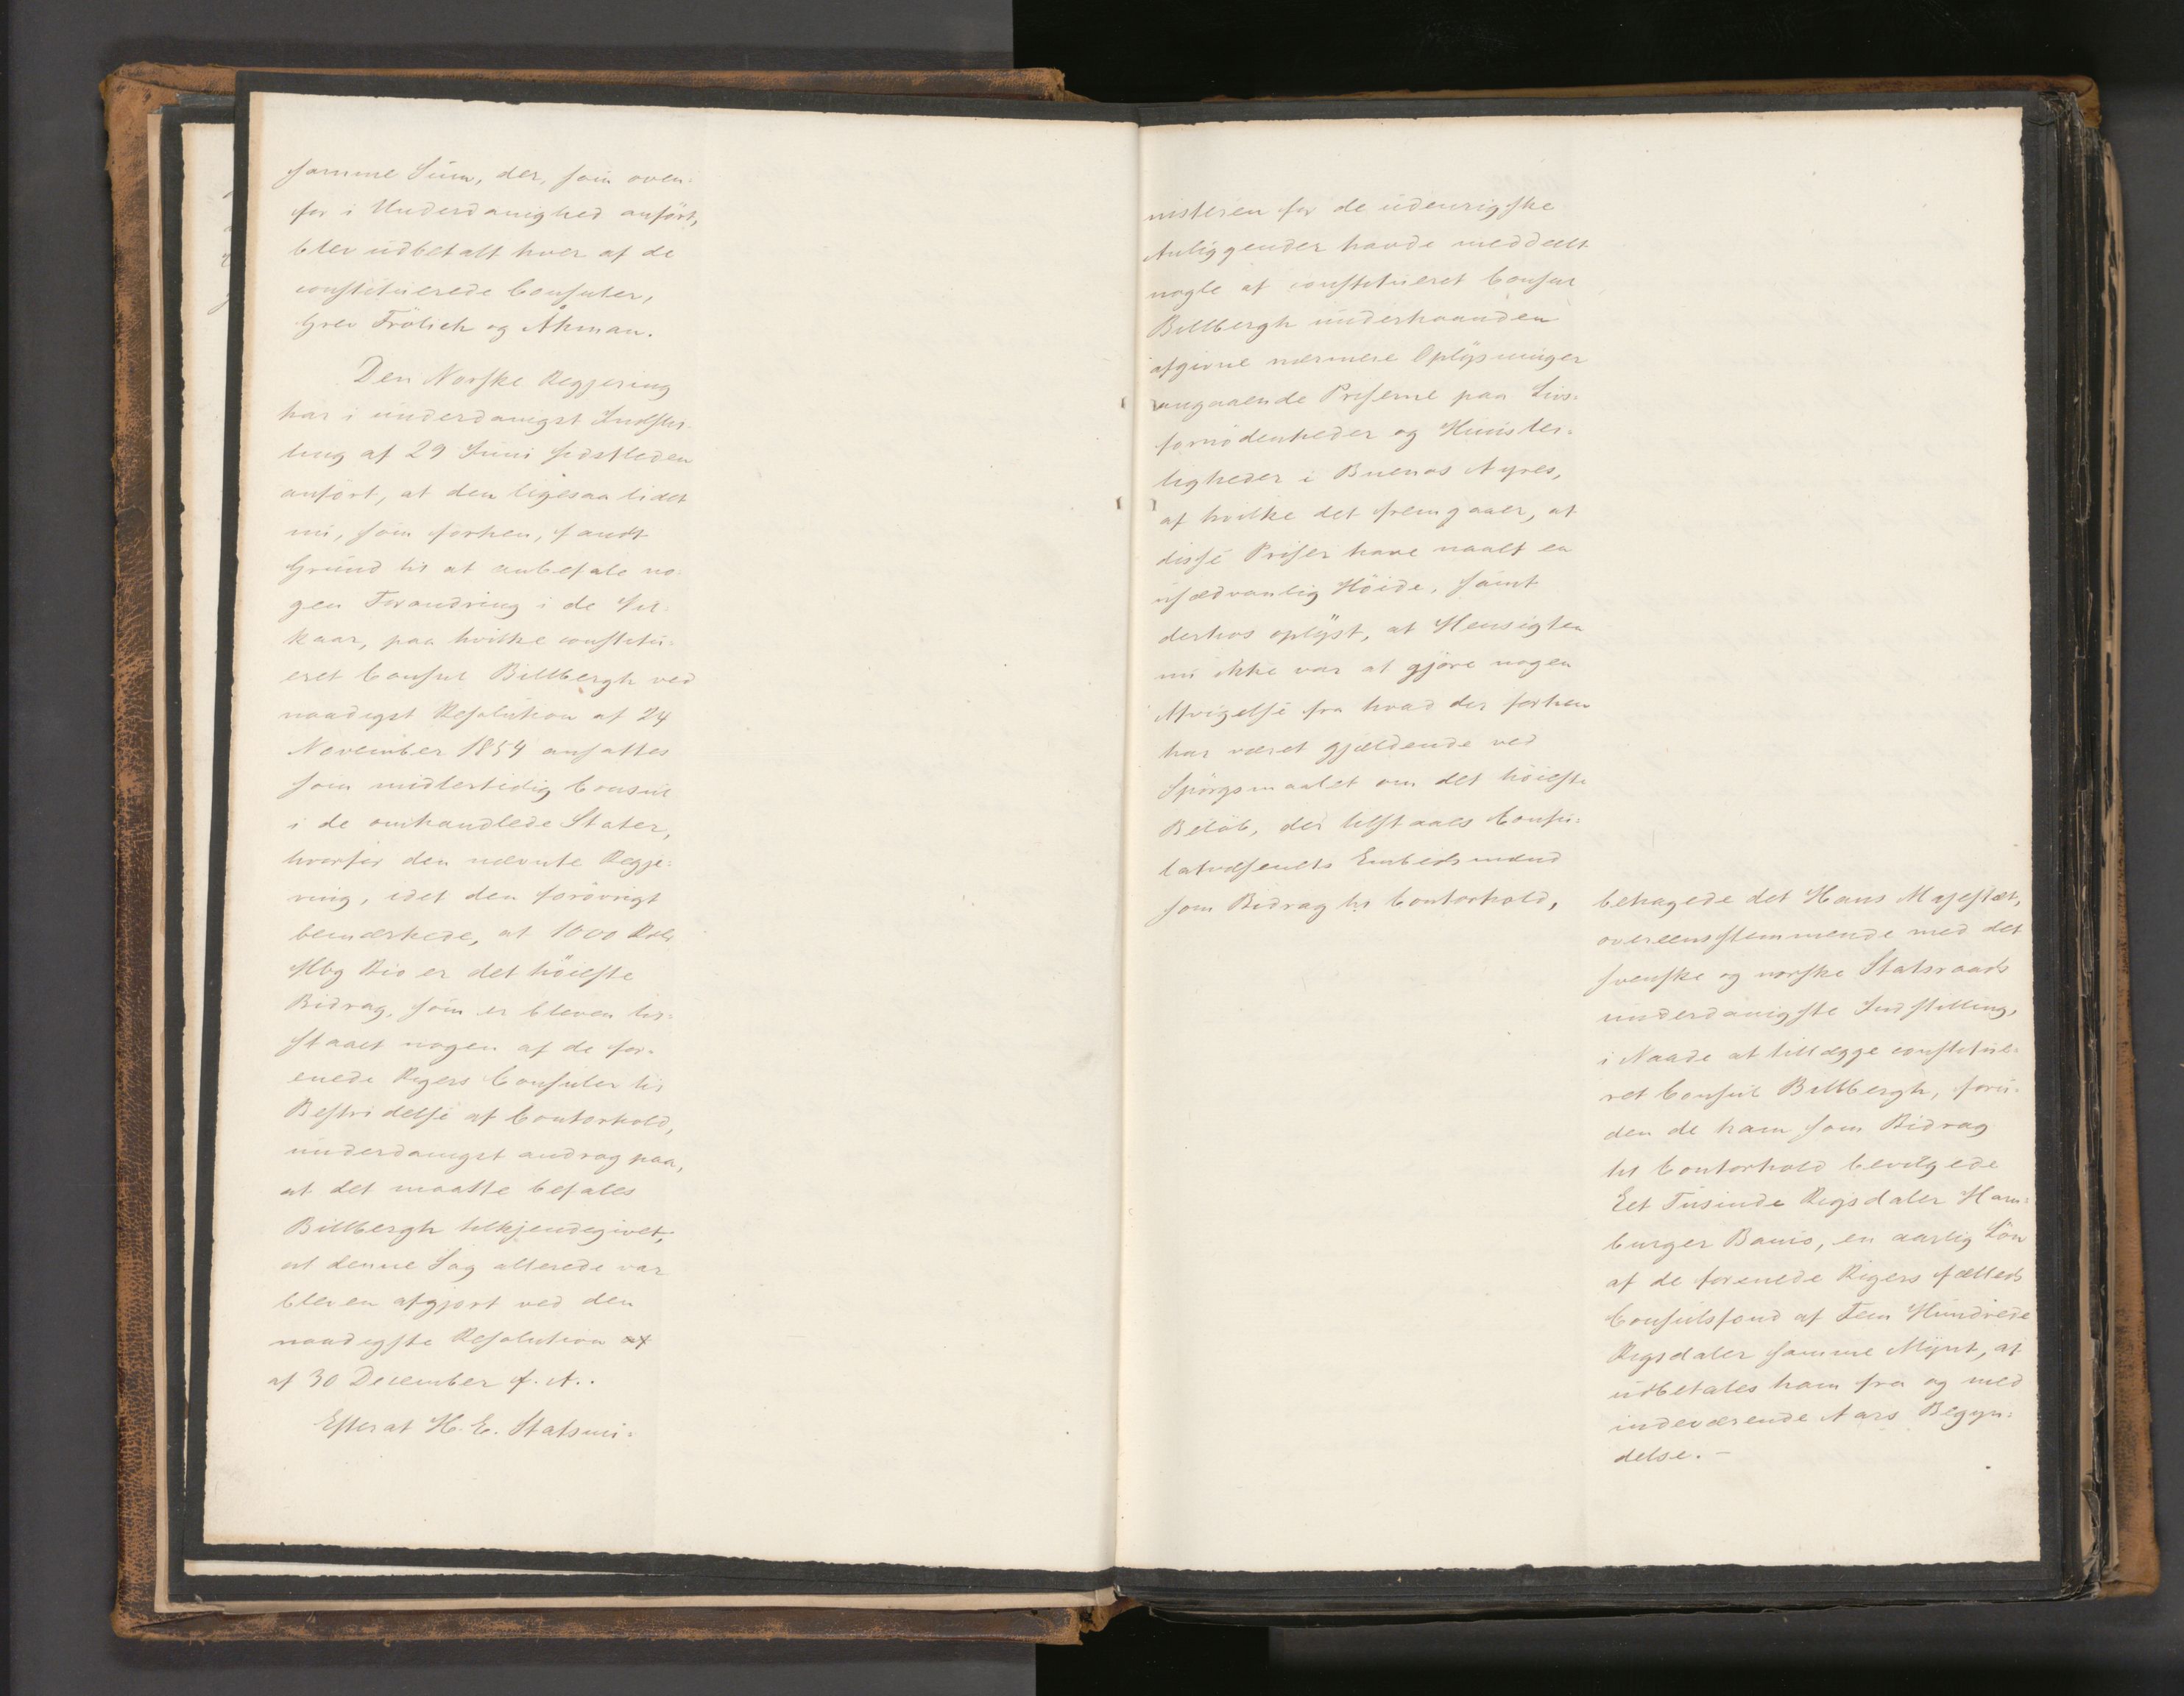 samme Sum, der, som oven-
for i Underdanighed anført,
blev udbetalt hver af de
constituerede Consuler,
Grev Frölich og Åhman.
Den Norske Regjering
har i underdanigst Indstil-
ling af 29 Juni sidstleden
anført, at den ligesaa lidet
nu, som forhen, fandt
Grund til at anbefale no-
gen Forandring i de Vil-
kaar, paa hvilke constitu-
eret Consul Billbergh ved
naadigst Resolution af 24
November 1854 ansattes
som midlertidig Consul
i de omhandlede Stater,
hvorfor den nævnte Regje-
ring, idet den forøvrigt
bemærkede, at 1000 Rdlr
Hbg Bco er det höieste
Bidrag, som er bleven til-
staaet nogen af de for-
enede Rigers Consuler til
Bestridelse af Contorhold,
underdanigst androg paa,
at det maatte befales
Billbergh tilkjendegivet,
at denne Sag allerede var
bleven afgjort ved den
naadigste Resolution af
af 30 December f. A..
Efterat H. E. Statsmi-
nisteren for de udenrigske
Anliggender havde meddeelt
nogle af constitueret Consul
Billbergh underhaanden
afgivne nærmere Oplysninger
angaaende Priserne paa Livs-
fornödenheder og Huusler-
ligheder i Buenos Ayres,
af hvilke det fremgaaer, at
disse Priser have naaet en
usædvanlig Höide, samt
derhos oplyst, at Hensigten
nu ikke var at gjöre nogen
Afvigelse fra hvad der forhen
har været gjældende ved
Spörgsmaalet om det höieste
Belöb, der tilstaaes Consu-
latvæsenets Embedsmænd
som Bidrag til Contorhold,
behagede det Hans Majestæt,
overeensstemmende med det
svenske og norske Statsraads
underdanigste Indstilling,
i Naade at tillægge constitue-
ret Consul Billbergh, foru-
den de ham som Bidrag
til Contorhold bevilgede
Eet Tusinde Rigsdaler Ham-
burger Banco, en aarlig Lön
af de forenede Rigers fælleds
Consulsfond af Fem Hundrede
Rigsdaler samme Mynt, at
udbetales ham fra og med
indeværende Aars Begyn-
delse. –